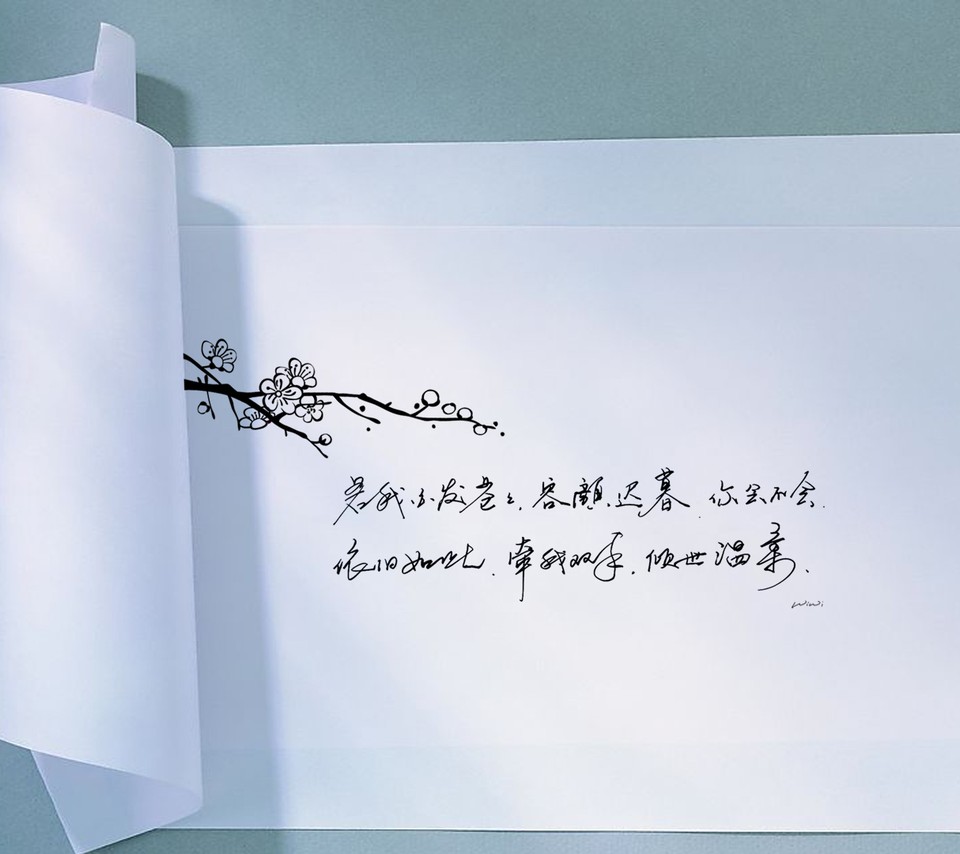 若我白发苍々,容颜迟暮.你会不会.
依旧如此.牵我双手.倾世温柔.
wiwi